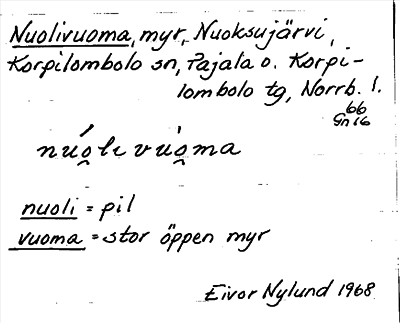 Nuolivuoma, myr, Nuoksujärvi,
Korpilombolo sn, Pajala o. Korpi-
lombolo tg, Norrb. l.
66
Gn 16
núo̯livùo̯ma
nuoli = pil
vuoma = stor öppen myr
Eivor Nylund 1968